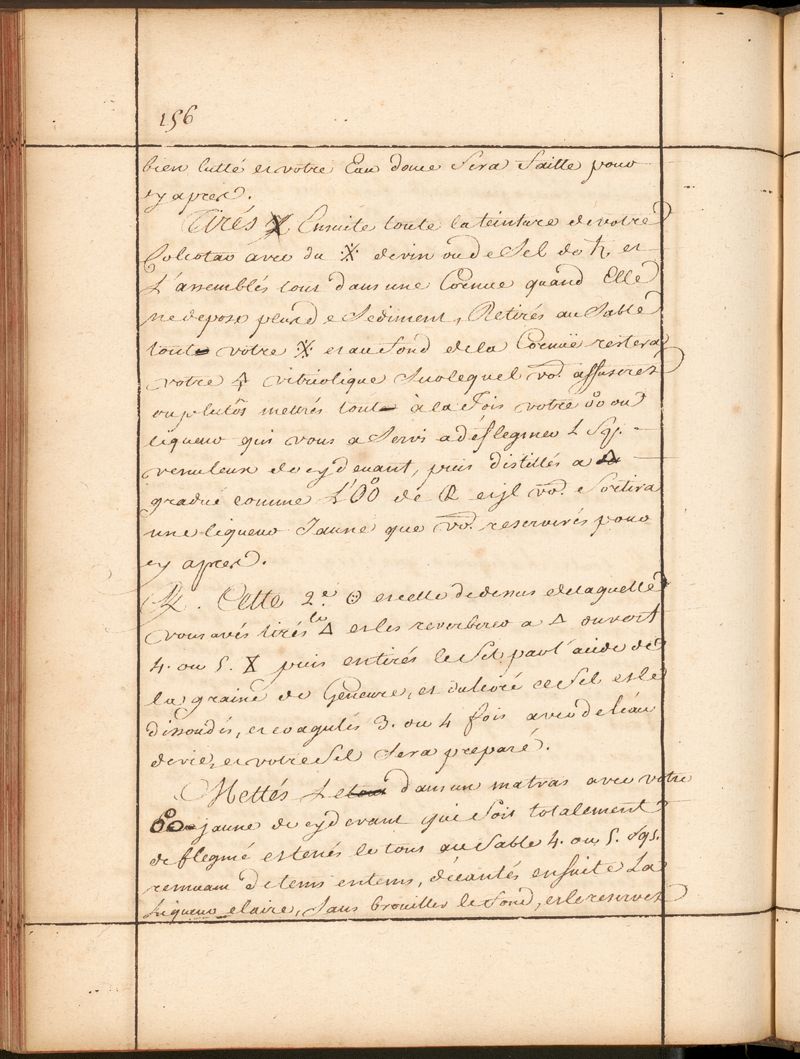 156
bien lutté et votre Eau douce sera faitte pour
cy apres.
Tirés Ensuite toute la teinture de votre
Colcotar avec du ⁜ de vin ou de Sel de ♄ et
L'assemblés tout dans une Cornue quand Elle
ne depose plus de Sediment, Retirés au Sable
tout votre ⁜ et au fond de la Cornuë restera
votre 🜍 vitriolique Sur lequel vo.s affuserés
ou plutôs mettrés tout à la fois votre ou
liqueur qui vous a Servi a déflegmer L
venuleux de cy devant, puis distillés a
gradué comme L' de et il vo.s Sortira
une liqueur Jaune que vo.s reserverés pour
cy apres.
Cette 2.e ☉ et celle de dessus de laquelle
vous avés tirés le △ et les reverberer a △ ouvert
4. ou 5. puis en tirés le Sel par l'aide de
la graine de Genevre, et ce Sel et le
dissoudés, et coagulés 3. ou 4 fois avec de l'eau
de vie, et votre Sel Sera preparé.
Mettés Le dans un matras avec votre
jaune de cy devant qui Soit totalement
deflegmé et tenés le tout au Sable 4. ou 5.
remuant de tems en tems, décantés ensuite La
Liqueur claire, Sans brouiller le fond, et le reservés